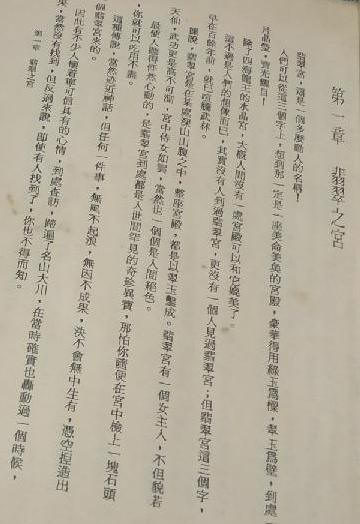 第一章　翡翠之宮
翡翠宮，這是一個多麼動人的名稱！
人們可以從這三個字上，想到那一定是一座美侖美奐的宮殿，豪華得用綠玉爲樑，翠玉爲壁，到處
晶瑩，寶光襯目！
除了四海龍王的水晶宮，大槪人間沒有一處宮殿可以和它媲美了。
這不過是人們的想像而已，其實沒有人到過翡翠宮，更沒有一個人見過翡翠宮；但翡翠宮這三個字，
早在百餘年前，就已喧騰武林。
據說，翡翠宮是在某處深山山腹之中，整座宮殿，都是以翠玉鑿成。翡翠宮有一個女主人，不但貌若
天仙，武功更是高不可測，宮中侍女如雲，當然也一個個是人間絕色。
最使人聽得怦然心動的，是翡翠宮到處都是人世間罕見的奇珍異寶，那怕你隨便在宮中檢上一塊石頭
，你就可以吃用不盡。
這種傳說，當然跡近神話，但任何一件事，無風不起浪，無因不成果，決不會無中生有，憑空捏造出
個翡翠宮來的。
因此有不少人懷着寧可信其有的心情，到處尋訪，踏遍了名山大川，在當時確實也轟動過一個時候，
當然沒有找到，但反過來說，卽使有人找到了，你也不得而知。
第一章　翡翠之宮